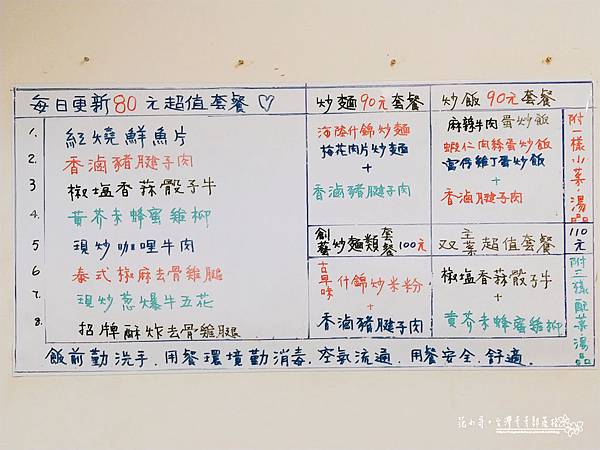 每日更新80元超值套餐♡
1. 紅燒鮮魚片
2. 香滷豬腱子肉
3 椒塩香蒜骰子牛
4. 黃芥末蜂蜜雞柳
5 現炒咖哩牛肉
6 泰式椒麻去骨雞腿
7. 現炒蔥爆牛五花
8. 招牌酥炸去骨雞腿
炒麵90元套餐
海陸什錦炒麵
梅花肉片炒麵
+
香滷豬腱子肉
炒飯90元套餐
麻辣牛肉蛋炒飯
蝦仁肉絲蛋炒飯
宮保雞丁蛋炒飯
+
香滷腱子肉
附一樣小菜.湯品
創藝炒麵類套餐100元
古早味什錦炒米粉
+
香滷豬腱子肉
双主菜超值套餐
110元
椒塩香蒜骰子牛
+
黃芥末蜂蜜雞柳
附三樣配菜湯品
飯前勤洗手.用餐環境勤消毒.空氣流通.用餐安全.舒適.